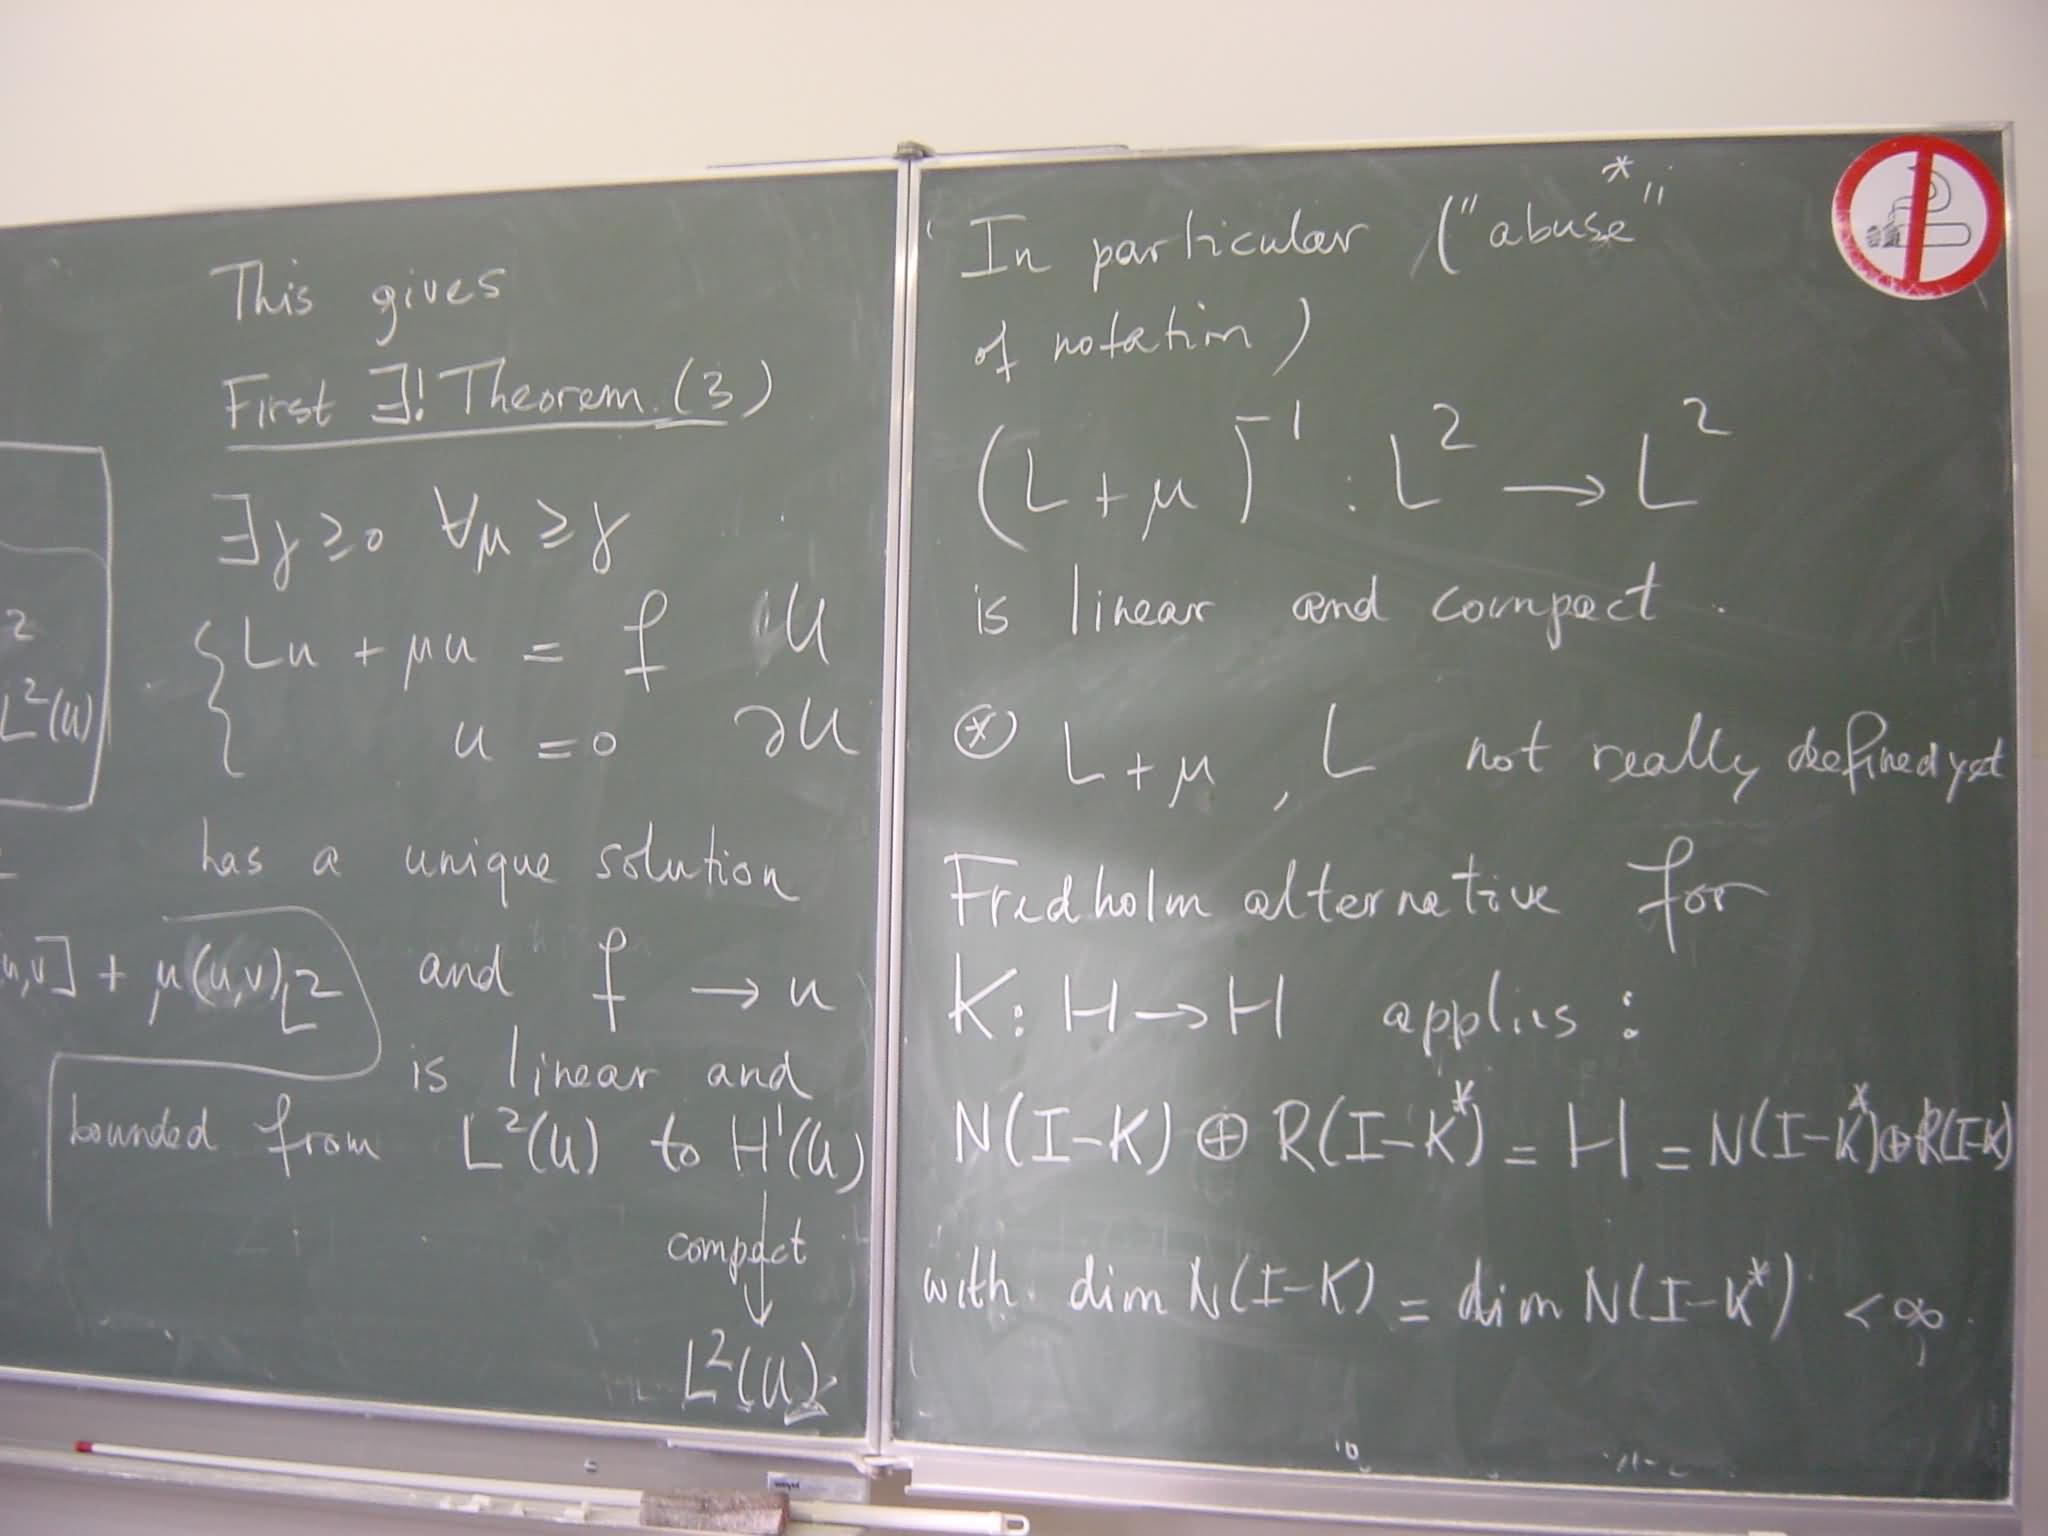 This gives
First ∃! Theorem (3)
∃γ ≥ 0 ∀μ ≥ γ
{ Lu + μu = f U
u = 0 ∂U
has a unique solution
and f → u
is linear and
bounded from L²(U) to H¹(U)
compact
L²(U)
2
L²(U)
u,v] + μ(u,v)_L²
In particular ("abuse"*
of notation)
(L + μ)⁻¹ : L² → L²
is linear and compact.
⊛ L + μ, L not really defined yet
Fredholm alternative for
K: H → H applies:
N(I-K) ⊕ R(I-K*) = H = N(I-K*) ⊕ R(I-K)
with dim N(I-K) = dim N(I-K*) < ∞